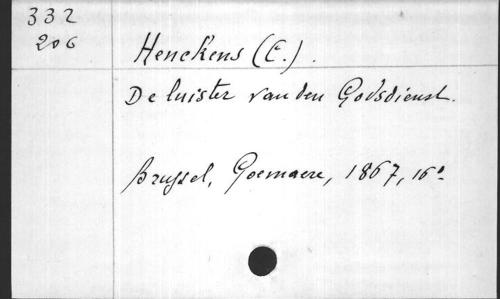 332
206
Henckens (E.).
De luister van den Godsdienst.
Brussel, Goemaere, 1867, 16º